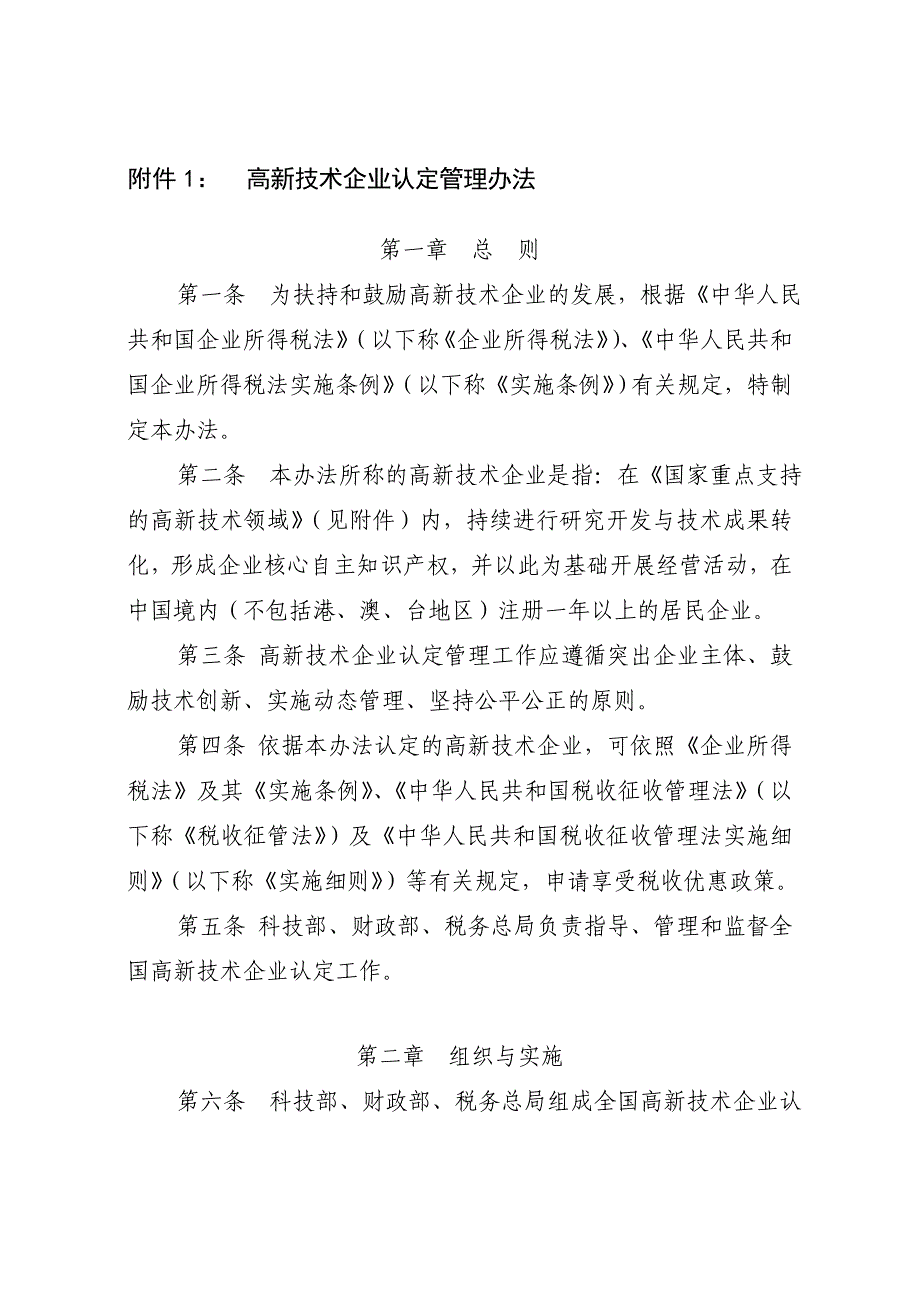 附件1： 高新技术企业认定管理办法
第一章 总 则
第一条 为扶持和鼓励高新技术企业的发展，根据《中华人民
共和国企业所得税法》（以下称《企业所得税法》）、《中华人民共和
国企业所得税法实施条例》（以下称《实施条例》）有关规定，特制
定本办法。
第二条 本办法所称的高新技术企业是指：在《国家重点支持
的高新技术领域》（见附件）内，持续进行研究开发与技术成果转
化，形成企业核心自主知识产权，并以此为基础开展经营活动，在
中国境内（不包括港、澳、台地区）注册一年以上的居民企业。
第三条 高新技术企业认定管理工作应遵循突出企业主体、鼓
励技术创新、实施动态管理、坚持公平公正的原则。
第四条 依据本办法认定的高新技术企业，可依照《企业所得
税法》及其《实施条例》、《中华人民共和国税收征收管理法》（以
下称《税收征管法》）及《中华人民共和国税收征收管理法实施细
则》（以下称《实施细则》）等有关规定，申请享受税收优惠政策。
第五条 科技部、财政部、税务总局负责指导、管理和监督全
国高新技术企业认定工作。
第二章 组织与实施
第六条 科技部、财政部、税务总局组成全国高新技术企业认